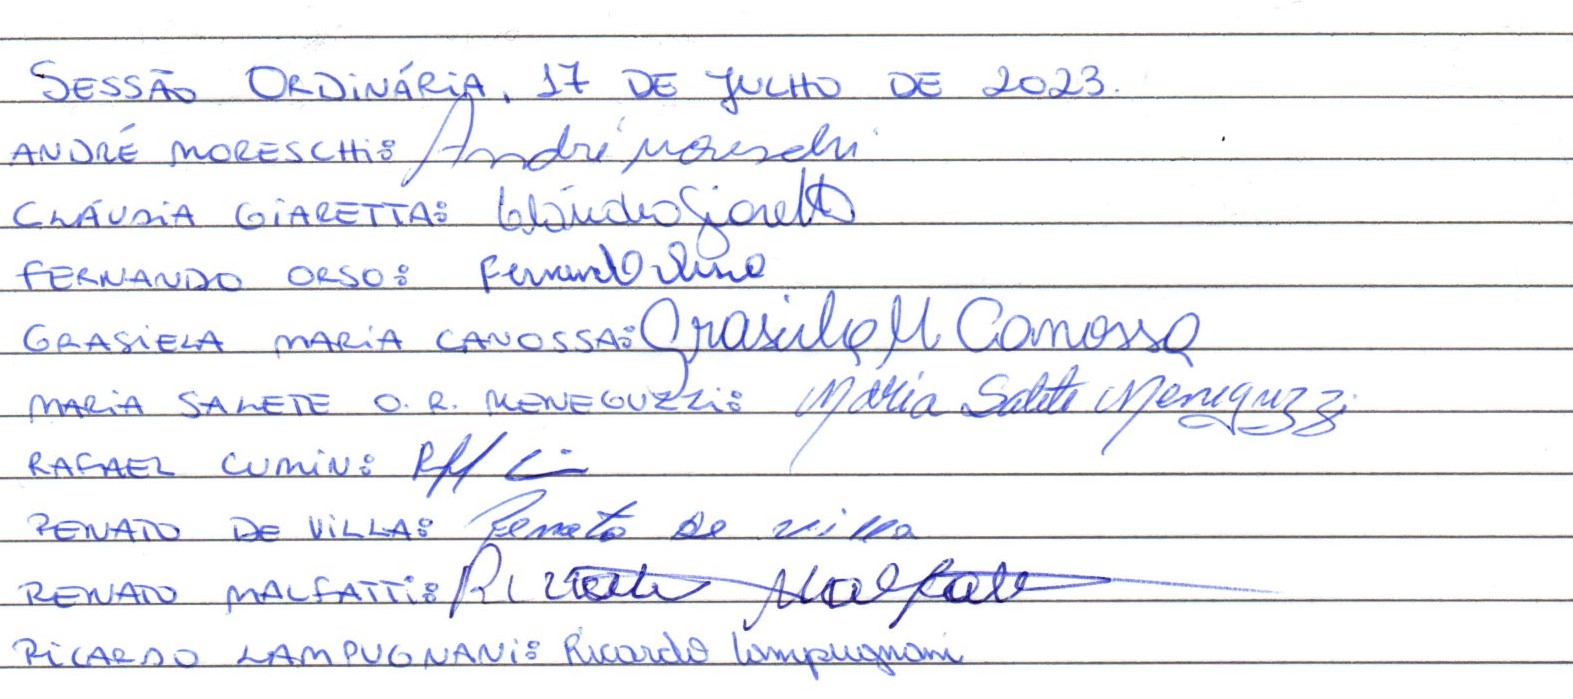 SESSÃO ORDINÁRIA, 17 DE JULHO DE 2023.
ANDRÉ MORESCHI: André Moreschi
CLÁUDIA GIARETTA: Cláudia Giaretta
FERNANDO ORSO: Fernando Orso
GRASIELA MARIA CANOSSA: Grasiela M Canossa
MARIA SALETE O. R. MENEGUZZI: Maria Salete Meneguzzi
RAFAEL CUMIN:
RENATO DE VILLA: Renato de villa
RENATO MALFATTI: Malfatti
RICARDO LAMPUGNANI: Ricardo Lampugnani